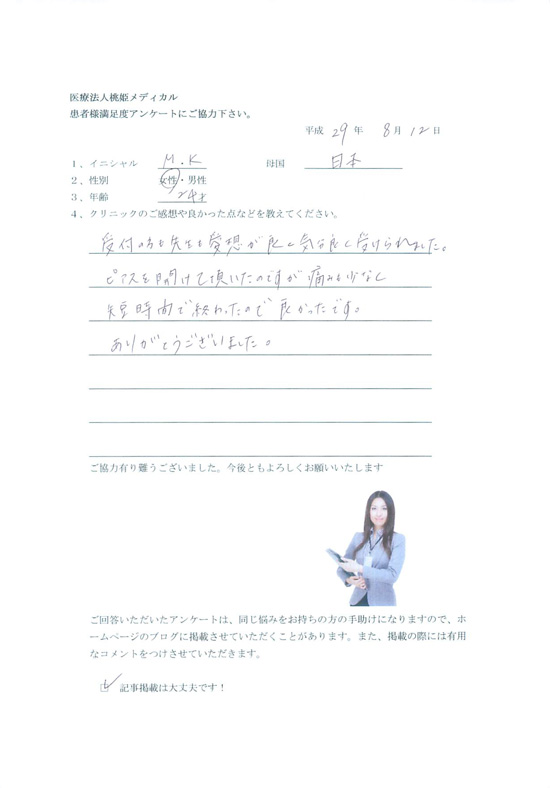 医療法人桃姫メディカル
患者様満足度アンケートにご協力下さい。
平成 29 年 8 月 12 日
1、イニシャル M.K 母国 日本
2、性別 女性・男性
3、年齢 24才
4、クリニックのご感想や良かった点などを教えてください。
受付の方も先生も愛想が良く気分良く受けられました。
ピアスを開けて頂いたのですが痛みも少なく
短時間で終わったので良かったです。
ありがとうございました。
ご協力有り難うございました。今後ともよろしくお願いいたします
ご回答いただいたアンケートは、同じ悩みをお持ちの方の手助けになりますので、ホ
ームページのブログに掲載させていただくことがあります。また、掲載の際には有用
なコメントをつけさせていただきます。
記事掲載は大丈夫です！